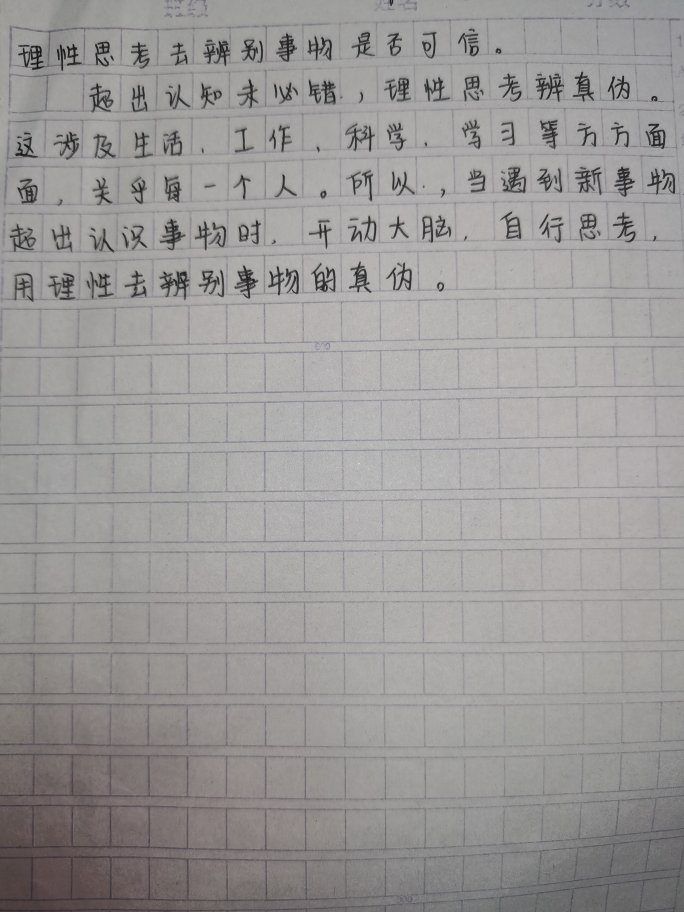 班级 姓名 分数
理性思考去辨别事物是否可信。
超出认知未必错,理性思考辨真伪。
这涉及生活、工作、科学、学习等方方面
面,关乎每一个人。所以,当遇到新事物
超出认识事物时,开动大脑,自行思考,
用理性去辨别事物的真伪。